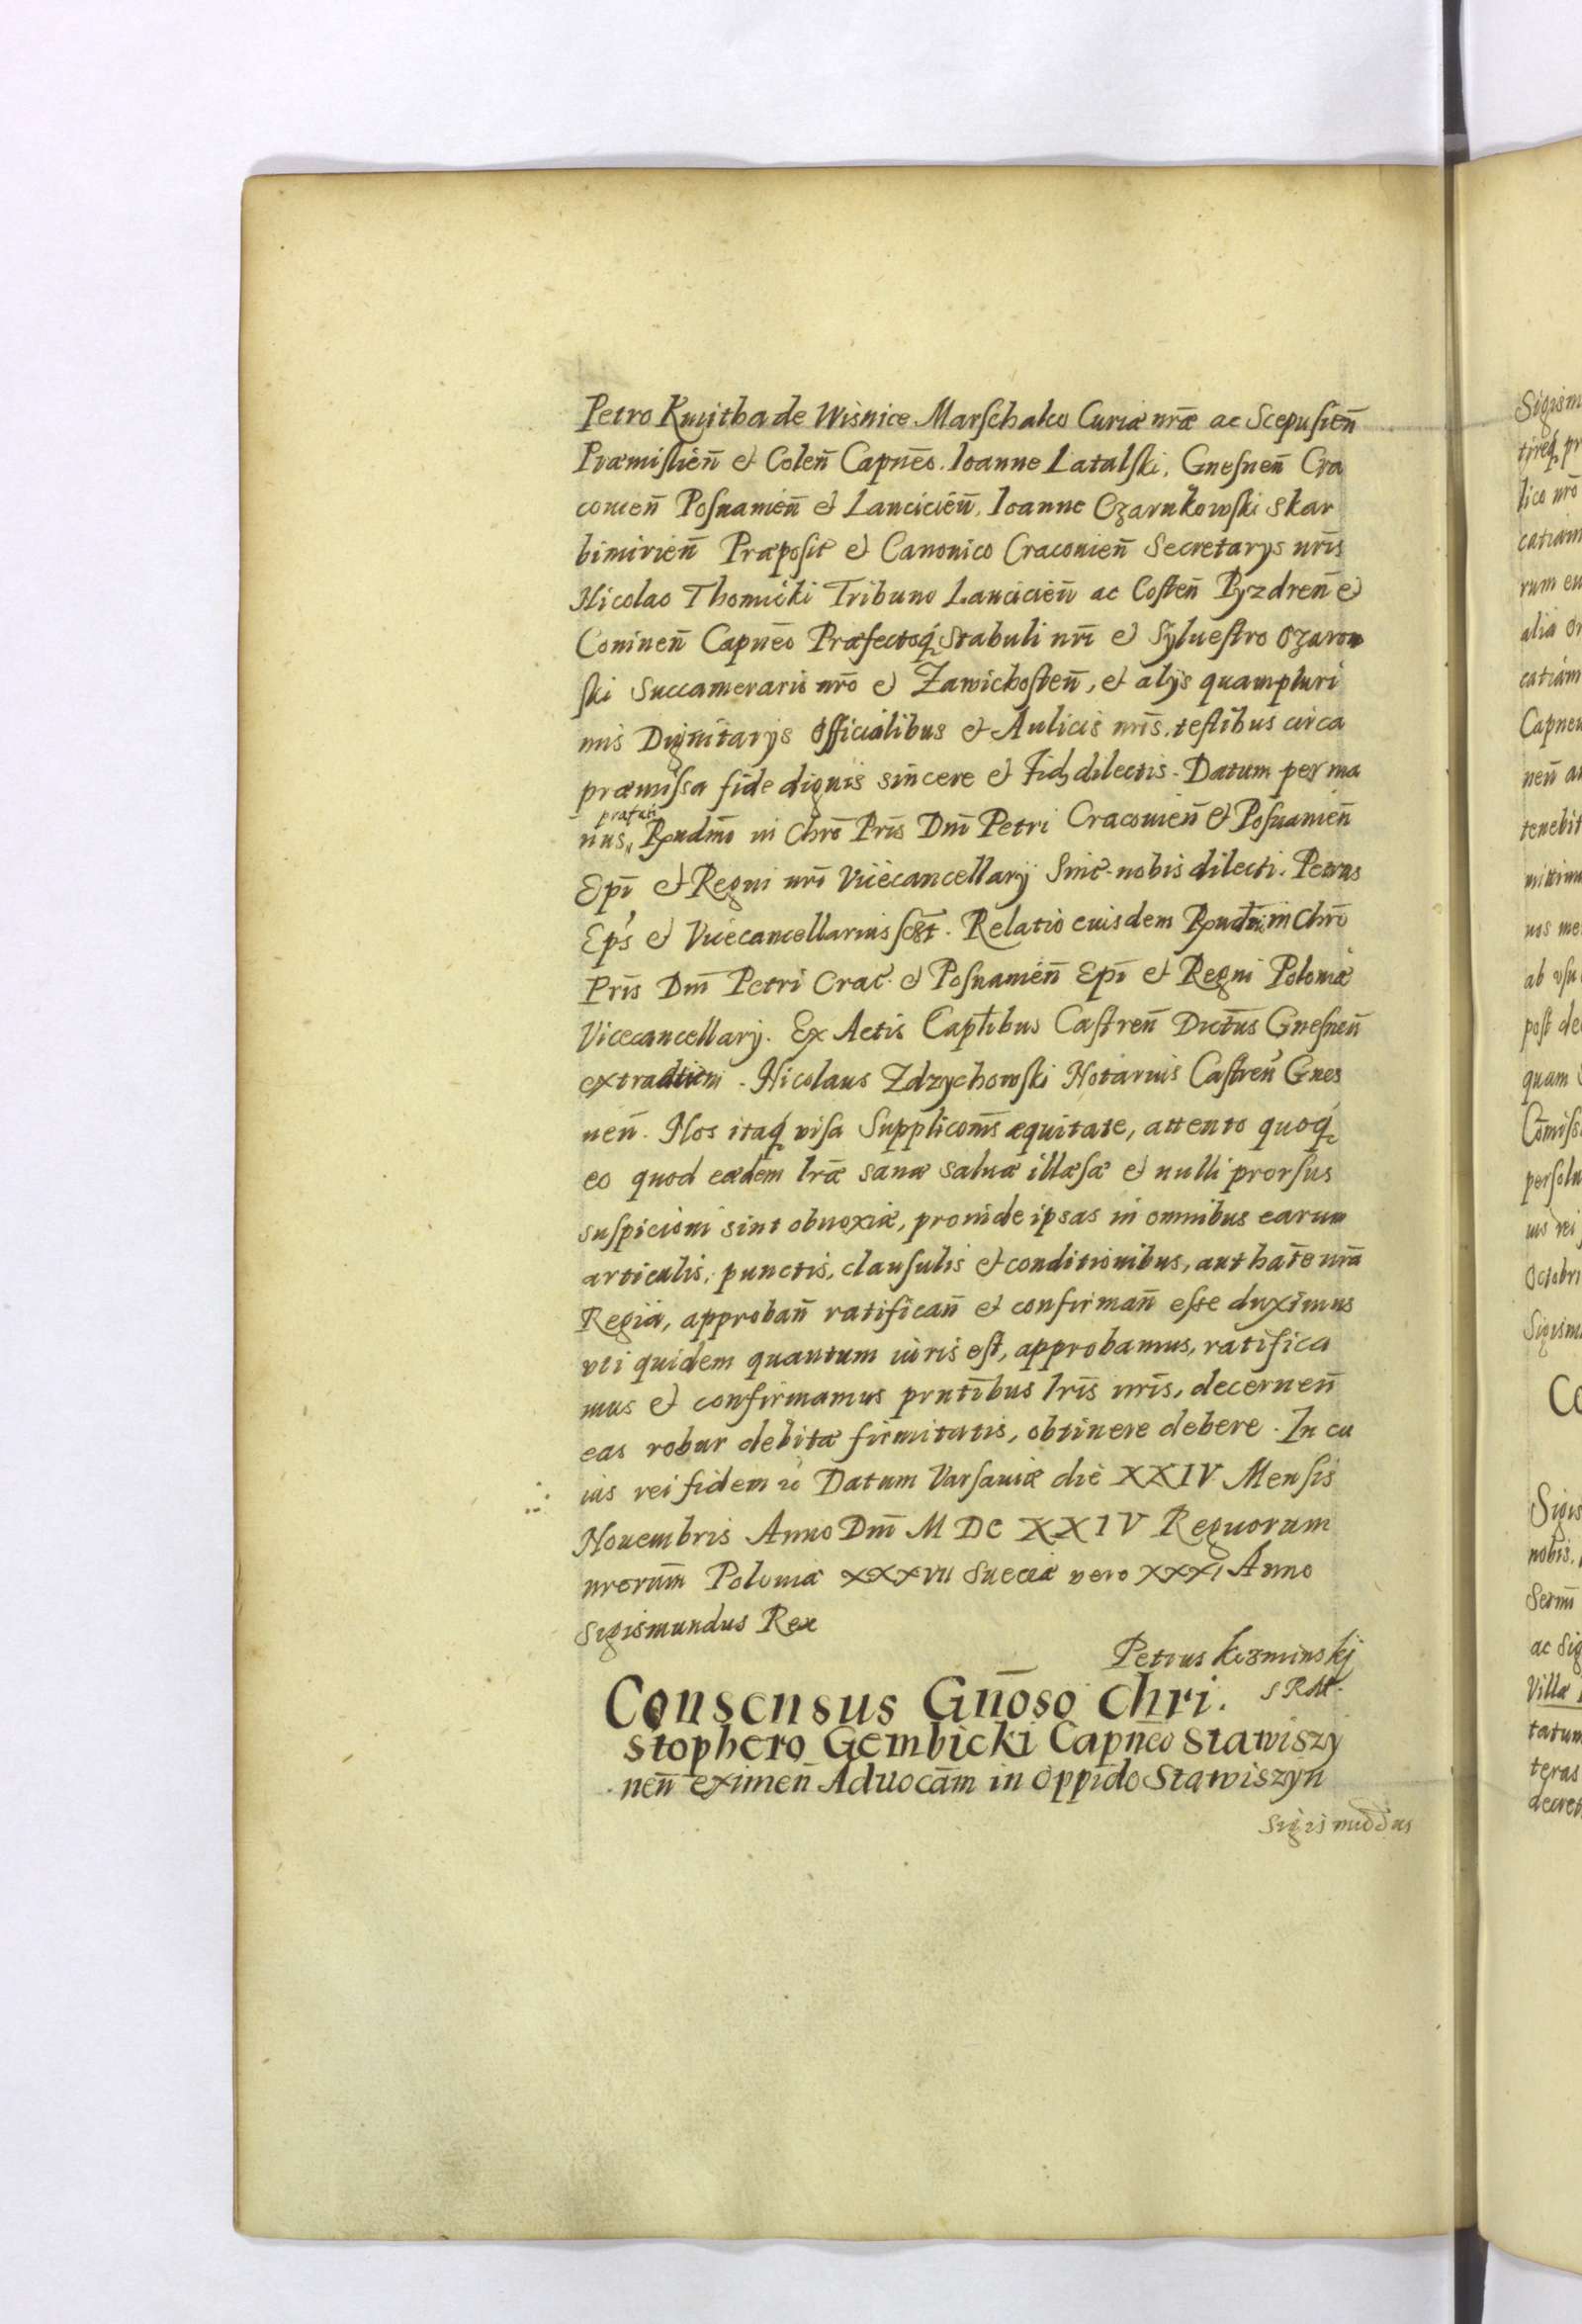 Petro Kmitha de Wisnice Marschalco Curiæ nr̄æ ac Scepusien̄
Præmislien̄ et Colen̄ Capnēo. Ioanne Latalski, Gnesnen̄ Cra
couien̄ Posnanien̄ et Lancicien̄, Ioanne Czarnkowski Skar
bimirien̄ Præposit et Canonico Cracouien̄ Secretarys nrīs
Nicolao Thomicki Tribuno Lancicien̄ ac Costen̄ Pyzdren̄ et
Coninen̄ Capnēo Præfectoq́ Stabuli nrī et Syluestro Ozarow
ski Succamerario nrō et Zawichosten̄, et alijs quampluri
mis Dignitarÿs Officialibus et Aulicis nrīs, testibus circa
præmissa fide dignis sincere et Fid dilectis. Datum per ma
præfati
nus, Rndmō in Chrō Prīs Dnī Petri Cracouien̄ et Posnanien̄
Epī et Regni nrī Vicecancellarÿ Sinc̄ nobis dilecti. Petrus
Epś et Vicecancellarius scst. Relatio eiusdem Rndmi in Chrō
Prīs Dnī Petri Crac̄. et Posnanien̄ Epī et Regni Poloniæ
Vicecancellarÿ. Ex Actis Captlibus Castren̄ Dictūs Gnesnen̄
extraditum. Nicolaus Zdzychowski Notarius Castren̄ Gnes
nen̄. Nos itaq́ visa Supplicōnis æquitate, attento quoq́
eo quod eædem lrǣ sanæ saluæ illæsæ et nulli prorsus
suspicioni sint obnoxiæ, proinde ipsas in omnibus earum
articulis, punctis, clausulis et conditionibus, authatē nrā
Regia, approban̄ ratifican̄ et confirman̄ esse duximus
vti quidem quantum iuris est, approbamus, ratifica
mus et confirmamus prntībus lrīs nrīs, decernen̄
eas robur debitæ firmitatis, obtinere debere. In cu
ius rei fidem &c Datum Varsauiæ die XXIV Mensis
Nouembris Anno Dnī M DC XXIV Regnorum
nrorūm Poloniæ XXXVII Sueciæ vero XXXI Anno
Sigismundus Rex
Petrus Kozminskj
S R M.
Consensus Gnōso Chri.
stophero Gembicki Capnēo Stawiszy
nen̄ eximen̄ Aduocām in oppido Stawiszyn
Sigismūdus